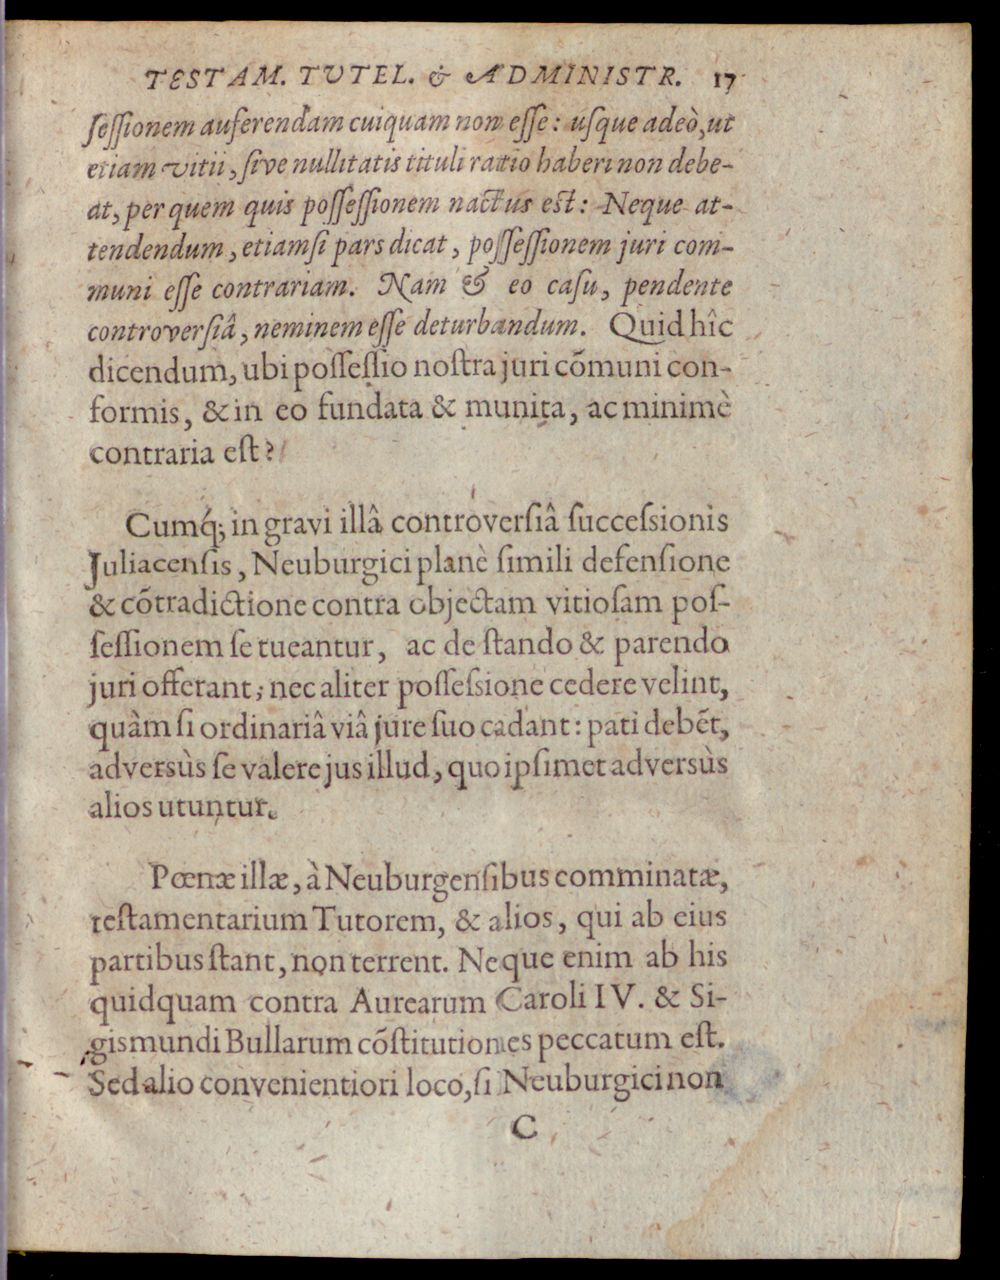 TESTAM. TVTEL. & ADMINISTR. 17
ſeſſionem auferendam cuiquam non eſſe: uſque adeò, ut
etiam vitii, ſive nullitatis tituli ratio haberi non debe-
at, per quem quis poſſeſſionem nactus est: Neque at-
tendendum, etiamſi pars dicat, poſſeſſionem juri com-
muni eſſe contrariam. Nam & eo caſu, pendente
controverſiâ, neminem eſſe deturbandum. Quid hîc
dicendum, ubi poſſeſſio noſtra juri cõmuni con-
formis, & in eo fundata & munita, ac minimè
contraria eſt?
Cumq́; in gravi illâ controverſiâ ſucceſsionis
Juliacenſis, Neuburgici planè ſimili defenſione
& cõtradictione contra objectam vitioſam poſ-
ſeſſionem ſe tueantur, ac de ſtando & parendo
juri offerant; nec aliter poſſeſsione cedere velint,
quàm ſi ordinariâ viâ jure ſuo cadant: pati debẽt,
adversùs ſe valere jus illud, quo ipſimet adversùs
alios utuntur.
Pœnæ illæ, à Neuburgenſibus comminatæ,
teſtamentarium Tutorem, & alios, qui ab eius
partibus ſtant, non terrent. Neque enim ab his
quidquam contra Aurearum Caroli IV. & Si-
gismundi Bullarum cõſtitutiones peccatum eſt.
Sed alio convenientiori loco, ſi Neuburgici non
C